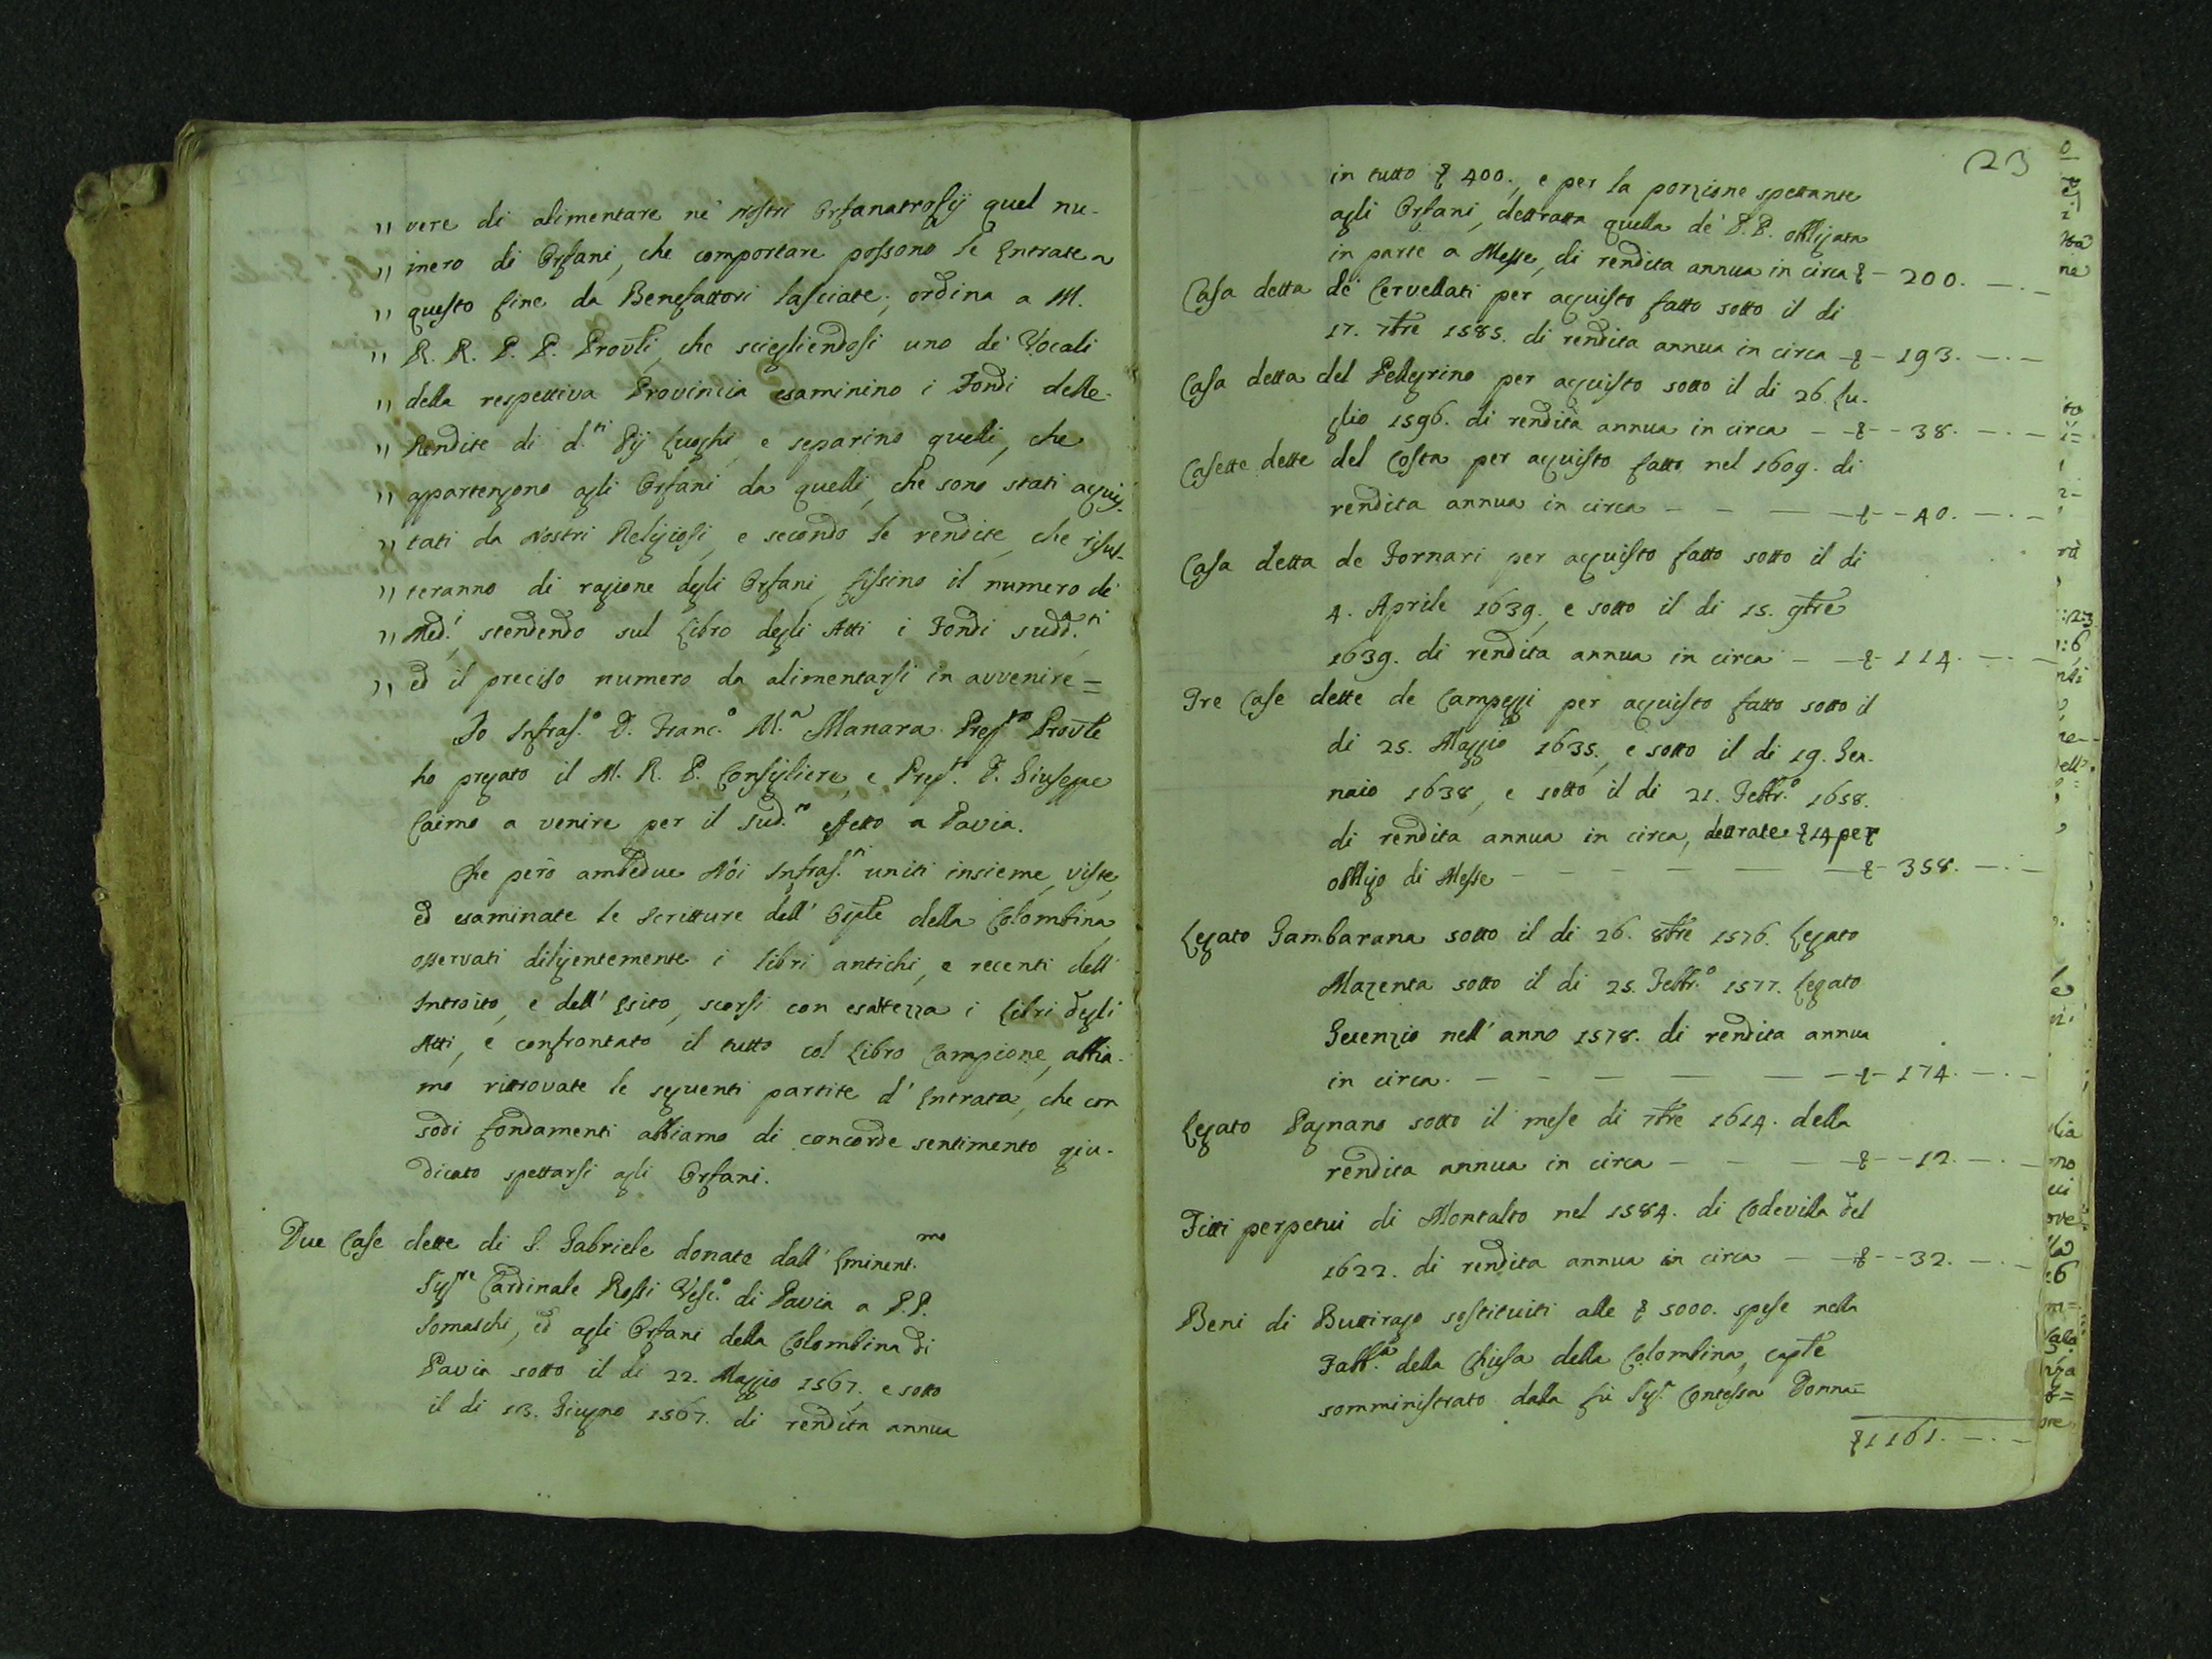 " vere di alimentare ne' Nostri Orfanatrofij quel nu-
" mero di Orfani, che comportare possono le Entrate a
" questo fine da Benefattori lasciate; ordina a M.
" R. R. P. P. Provli, che sciegliendosi uno de' Vocali
" della respettiva Provincia esaminino i Fondi delle
" Rendite di d.ti Pij Luoghi, e separino quelli, che
" appartengono agli Orfani da quelli, che sono stati acquis-
" tati da Nostri Religiosi, e secondo le rendite, che risul-
" teranno di ragione degli Orfani, fissino il numero de'
" Med.i, stendendo sul Libro degli Atti i Fondi sudd.ti,
" ed il preciso numero da alimentarsi in avvenire=
Io Infras.o D. Franc.o M.a Manara Prep.to Provle
ho pregato il M. R. P. Consigliere, e Prep.to D. Giuseppe
Caimo a venire per il sud.to effetto a Pavia.
Che però ambedue Noi Infras.ti uniti insieme, viste,
ed esaminate le Scritture dell' Osple della Colombina,
osservati diligentemente i libri antichi, e recenti dell'
Introito, e dell' Esito, scorsi con esattezza i Libri degli
Atti, e confrontato il tutto col Libro Campione, abbia-
mo ritrovate le seguenti partite d' Entrata, che con
sodi fondamenti abbiamo di concorde sentimento giu-
dicato spettarsi agli Orfani.
Due Case dette di S. Gabriele donate dall' Eminent.mo
Sig.re Cardinale Rossi Vesc.o di Pavia a P.P.
Somaschi, ed agli Orfani della Colombina di
Pavia sotto il di 22. Maggio 1567, e sotto
il di 13. Giugno 1567. di rendita annua
23
in tutto £ 400., e per la porzione spettante
agli Orfani, dettratta quella de' P.P. obbligata
in parte a Messe, di rendita annua in circa £ - 200. - . -
Casa detta de' Cervellati per acquisto fatto sotto il di
17. 7bre 1585. di rendita annua in circa - £ - 193. - . -
Casa detta del Pellegrino per acquisto sotto il di 26. Lu-
glio 1596. di rendita annua in circa - - £ - - 38. - . -
Casette dette del Costa per acquisto fatto nel 1609. di
rendita annua in circa - - - - £ - - 40. - . -
Casa detta de Fornari per acquisto fatto sotto il di
4. Aprile 1639., e sotto il di 15. 9bre
1639. di rendita annua in circa - - £ - 114. - . -
Tre Case dette de Campeggi per acquisto fatto sotto il
di 25. Maggio 1635., e sotto il di 19. Gen-
naio 1638, e sotto il di 21. Febbr.o 1658.
di rendita annua in circa, dettrate £ 14 per
obbligo di Messe - - - - - - £ - 358. - . -
Legato Gambarana sotto il di 26. 8bre 1576. Legato
Mazenta sotto il di 25. Febbr.o 1577. Legato
Gerenzio nell' anno 1578. di rendita annua
in circa. - - - - - - £ - 174. - . -
Legato Pagnano sotto il mese di 7bre 1614. della
rendita annua in circa - - - - £ - - 12. - . -
Fitti perpetui di Montalto nel 1584. di Codevilla del
1622. di rendita annua in circa - - £ - - 32. - . -
Beni di Buttirago sostituiti alle £ 5000. spese nella
Fabb.a della Chiesa della Colombina, caple
somministrato dalla fù Sig.ra Contessa Donna=
£ 1161. - . -